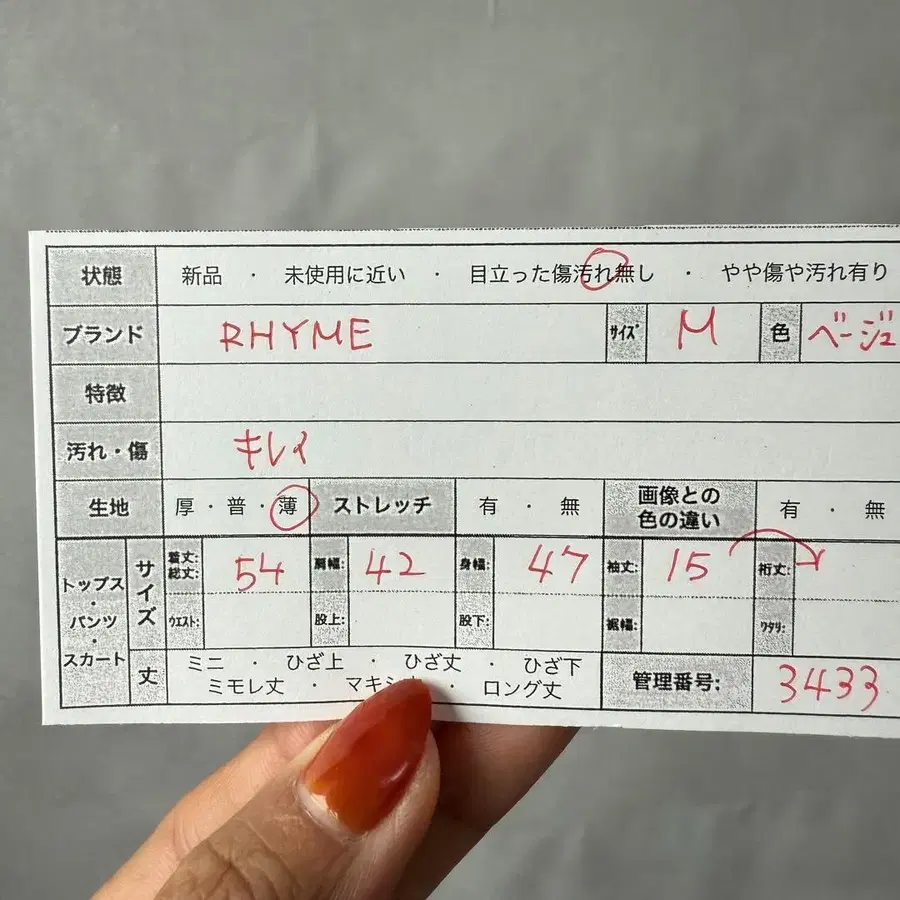 状態 新品 ・ 未使用に近い ・ 目立った傷汚れ無し ・ やや傷や汚れ有り
ブランド RHYME ｻｲｽﾞ M 色 ベージュ
特徴
汚れ・傷 キレイ
生地 厚・普・薄 ストレッチ 有 ・ 無 画像との色の違い 有 ・ 無
トップス・パンツ・スカート サイズ 着丈:総丈: 54 肩幅: 42 身幅: 47 袖丈: 15 裄丈:
ｳｴｽﾄ: 股上: 股下: 裾幅: ﾜﾀﾘ:
丈 ミニ ・ ひざ上 ・ ひざ丈 ・ ひざ下
ミモレ丈 ・ マキシ ・ ロング丈 管理番号: 3433